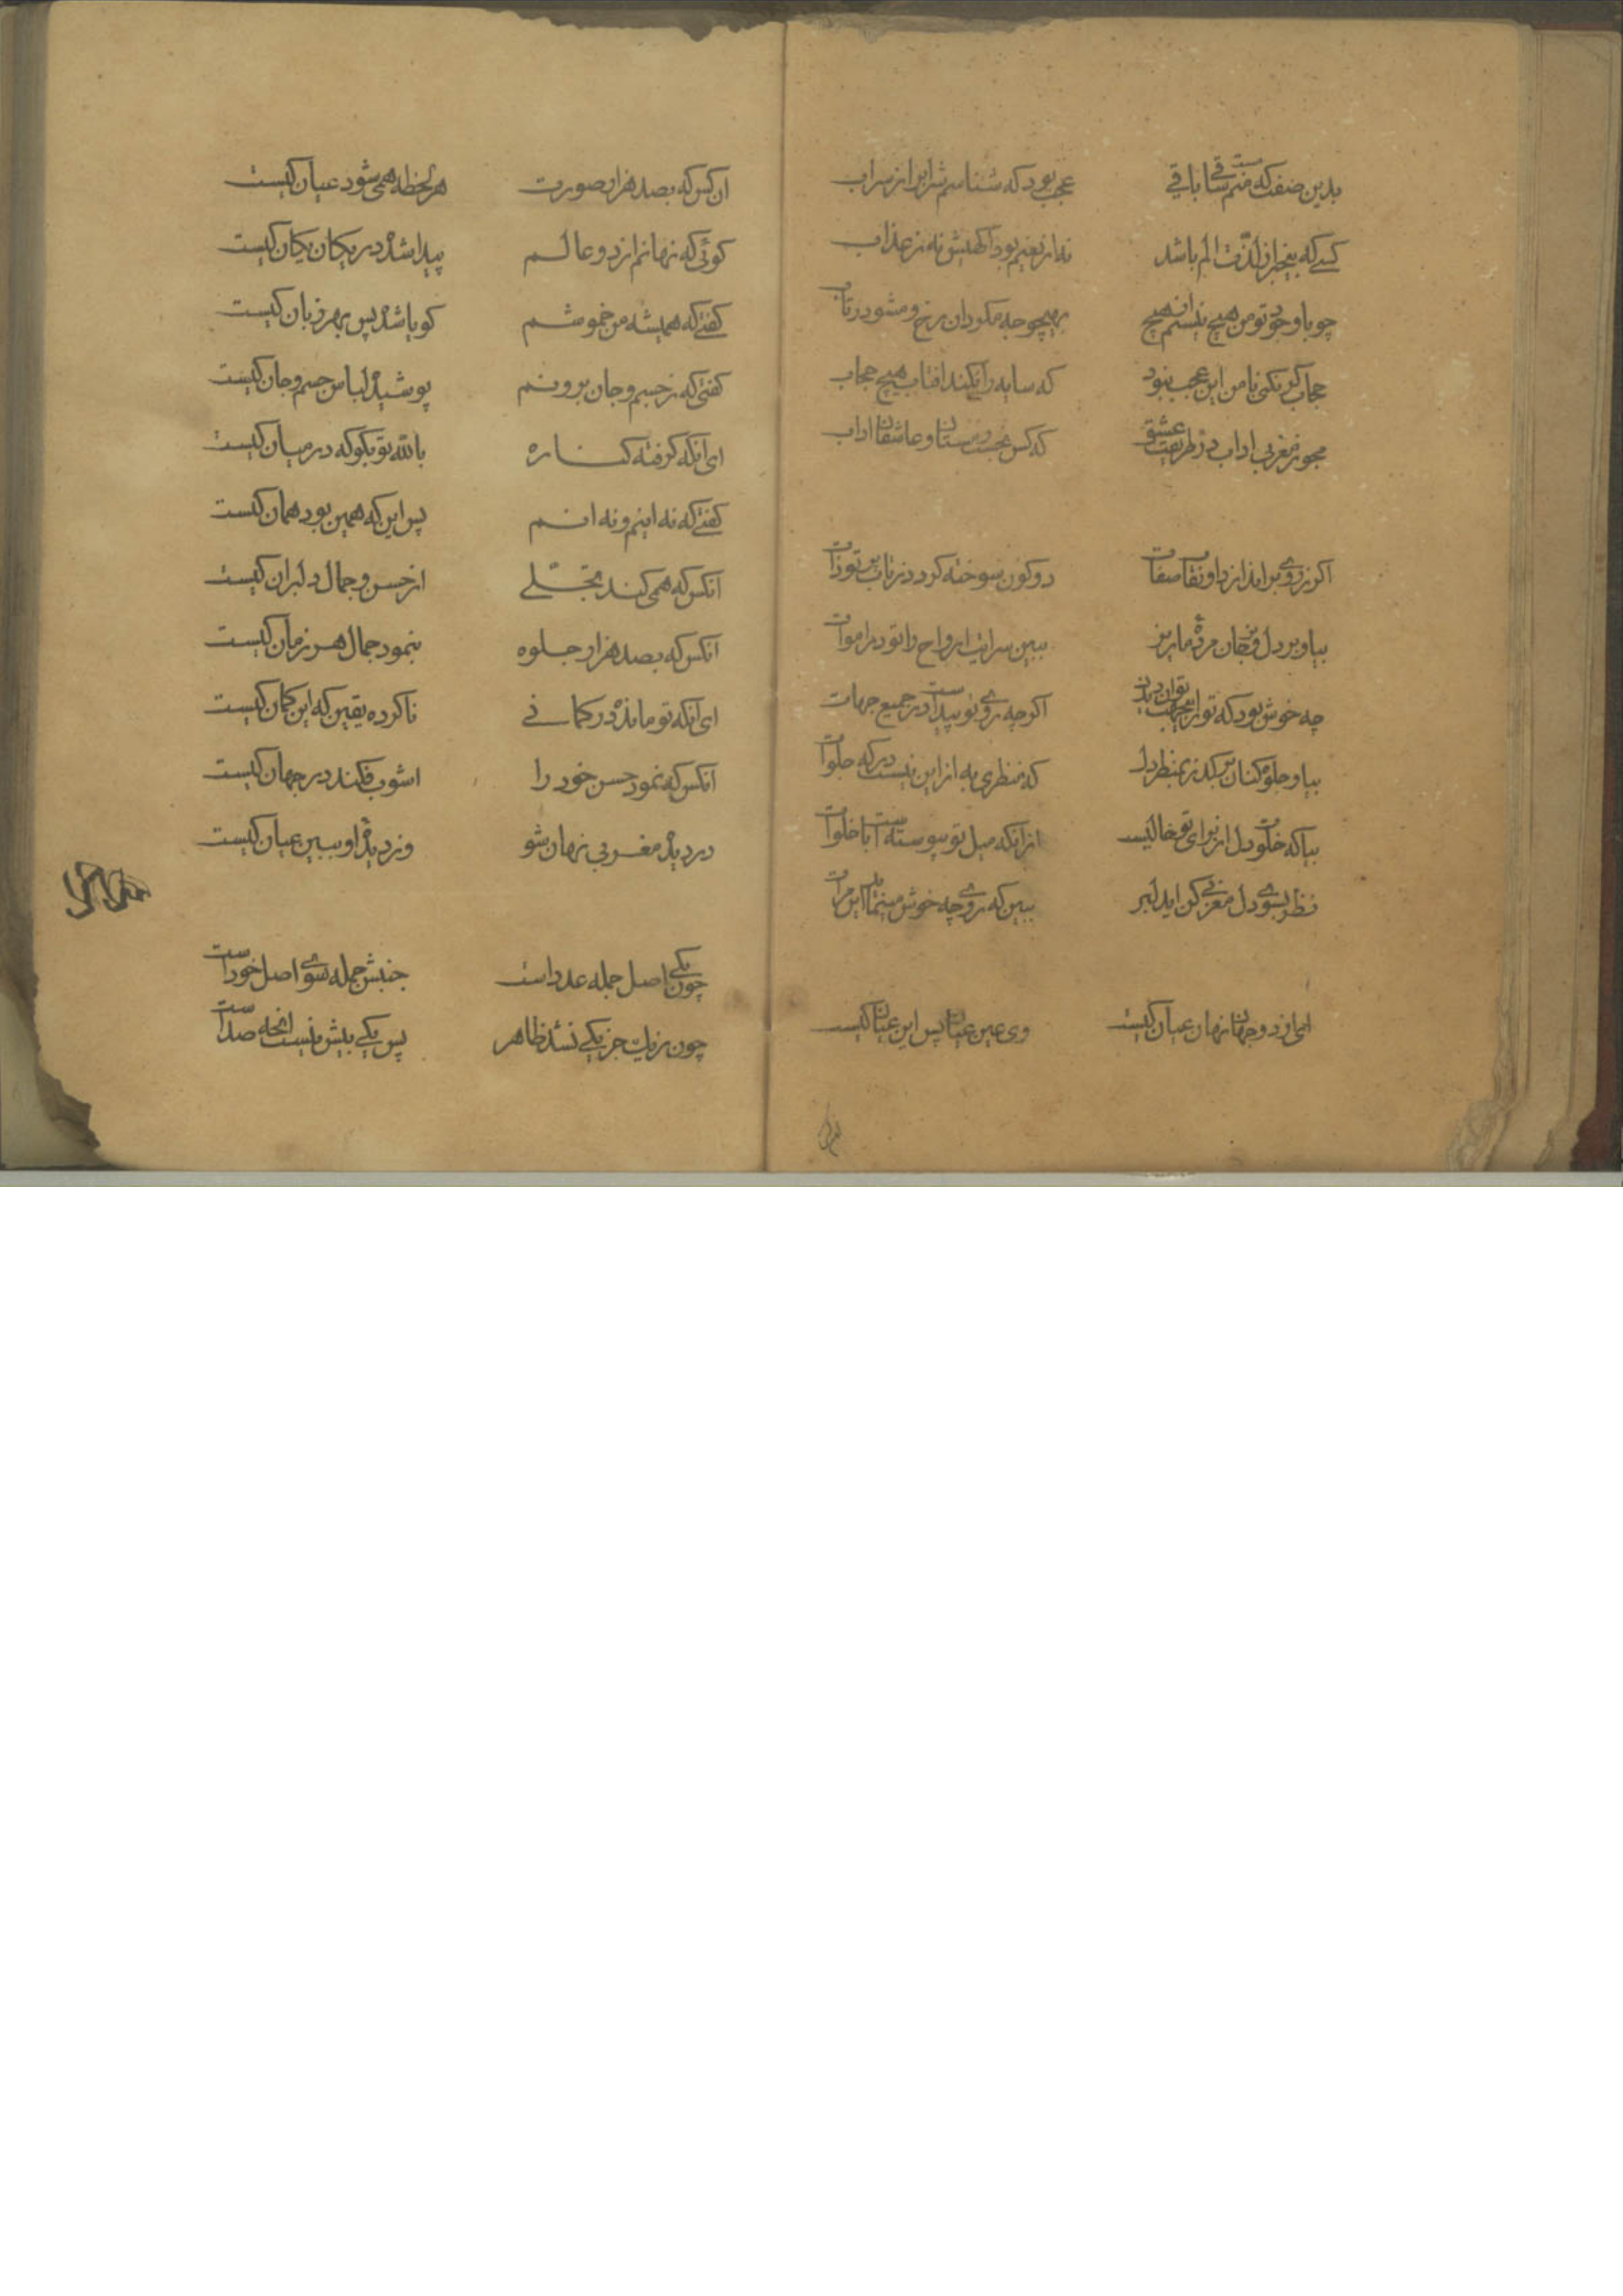 بدین صفت که منم مست ساقی باقی عجب بود که شناسم شراب را ز سراب
کسی که بیخبر از لذت الم باشد نه از نعیم بود آگهیش نه ز عذاب
چو با وجود تو من هیچ نیستم از هیچ بهیچوجه مکردان رخ و مشو در تاب
حجاب کر نکنی با من این عجب نبود که سایه را نکند افتاب هیچ حجاب
مجو ز مغربی اداب در طریقت عشق که کس نجست ز مستان و عاشقان اداب
اکر ز روی براندازد او نقاب صفات دو کون سوخته کردد ز تاب پرتو ذات
بیا و بر دل و جان مرده ما ریز ببین سرایت ارواح را تو در اموات
چه خوش بود که تو را بیجهت توان دیدن اکرچه روی تو پیداست در جمیع جهات
بیا و جلوه کنان بر کذر بمنظر دل که منظری به از این نیست در که جلوات
بیا که خلوت دل از برای تو خالیست از آنکه میل تو پیوسته است با خلوات
نظر بسوی دل مغربی کن ای دلبر ببین که روی چه خوش مینماید این مرآت
ای از دو جهان نهان عیان کیست وی عین عیان پس این عیان کیست
ان کس که بصد هزار صورت هر لحظه همی شود عیان کیست
کوئی که نهانم از دو عالم پیدا شده در یکان یکان کیست
کفتی که همیشه من خموشم کویا شده پس بهر زبان کیست
کفتی که ز جسم و جان برونم پوشیده لباس جسم و جان کیست
ای آنکه کرفته کناره بالله تو بکو که در میان کیست
کفتی که نه اینم و نه انم پس این که همین بود همان کیست
آنکس که همی کند تجلّی از حسن و جمال دلبران کیست
آنکس که بصد هزار جلوه بنمود جمال هر زمان کیست
ای آنکه تو مانده در کمانی ناکرده یقین که این کمان کیست
آنکس که نمود حسن خود را اشوب فکند در جهان کیست
در دیده مغربی نهان شو وز دیده او ببین عیان کیست
چون یکی اصل جمله عدد است جنبش جمله سوی اصل خود است
چون ز یک جز یکی نشد ظاهر پس یکی بیش نیست انچه صد است